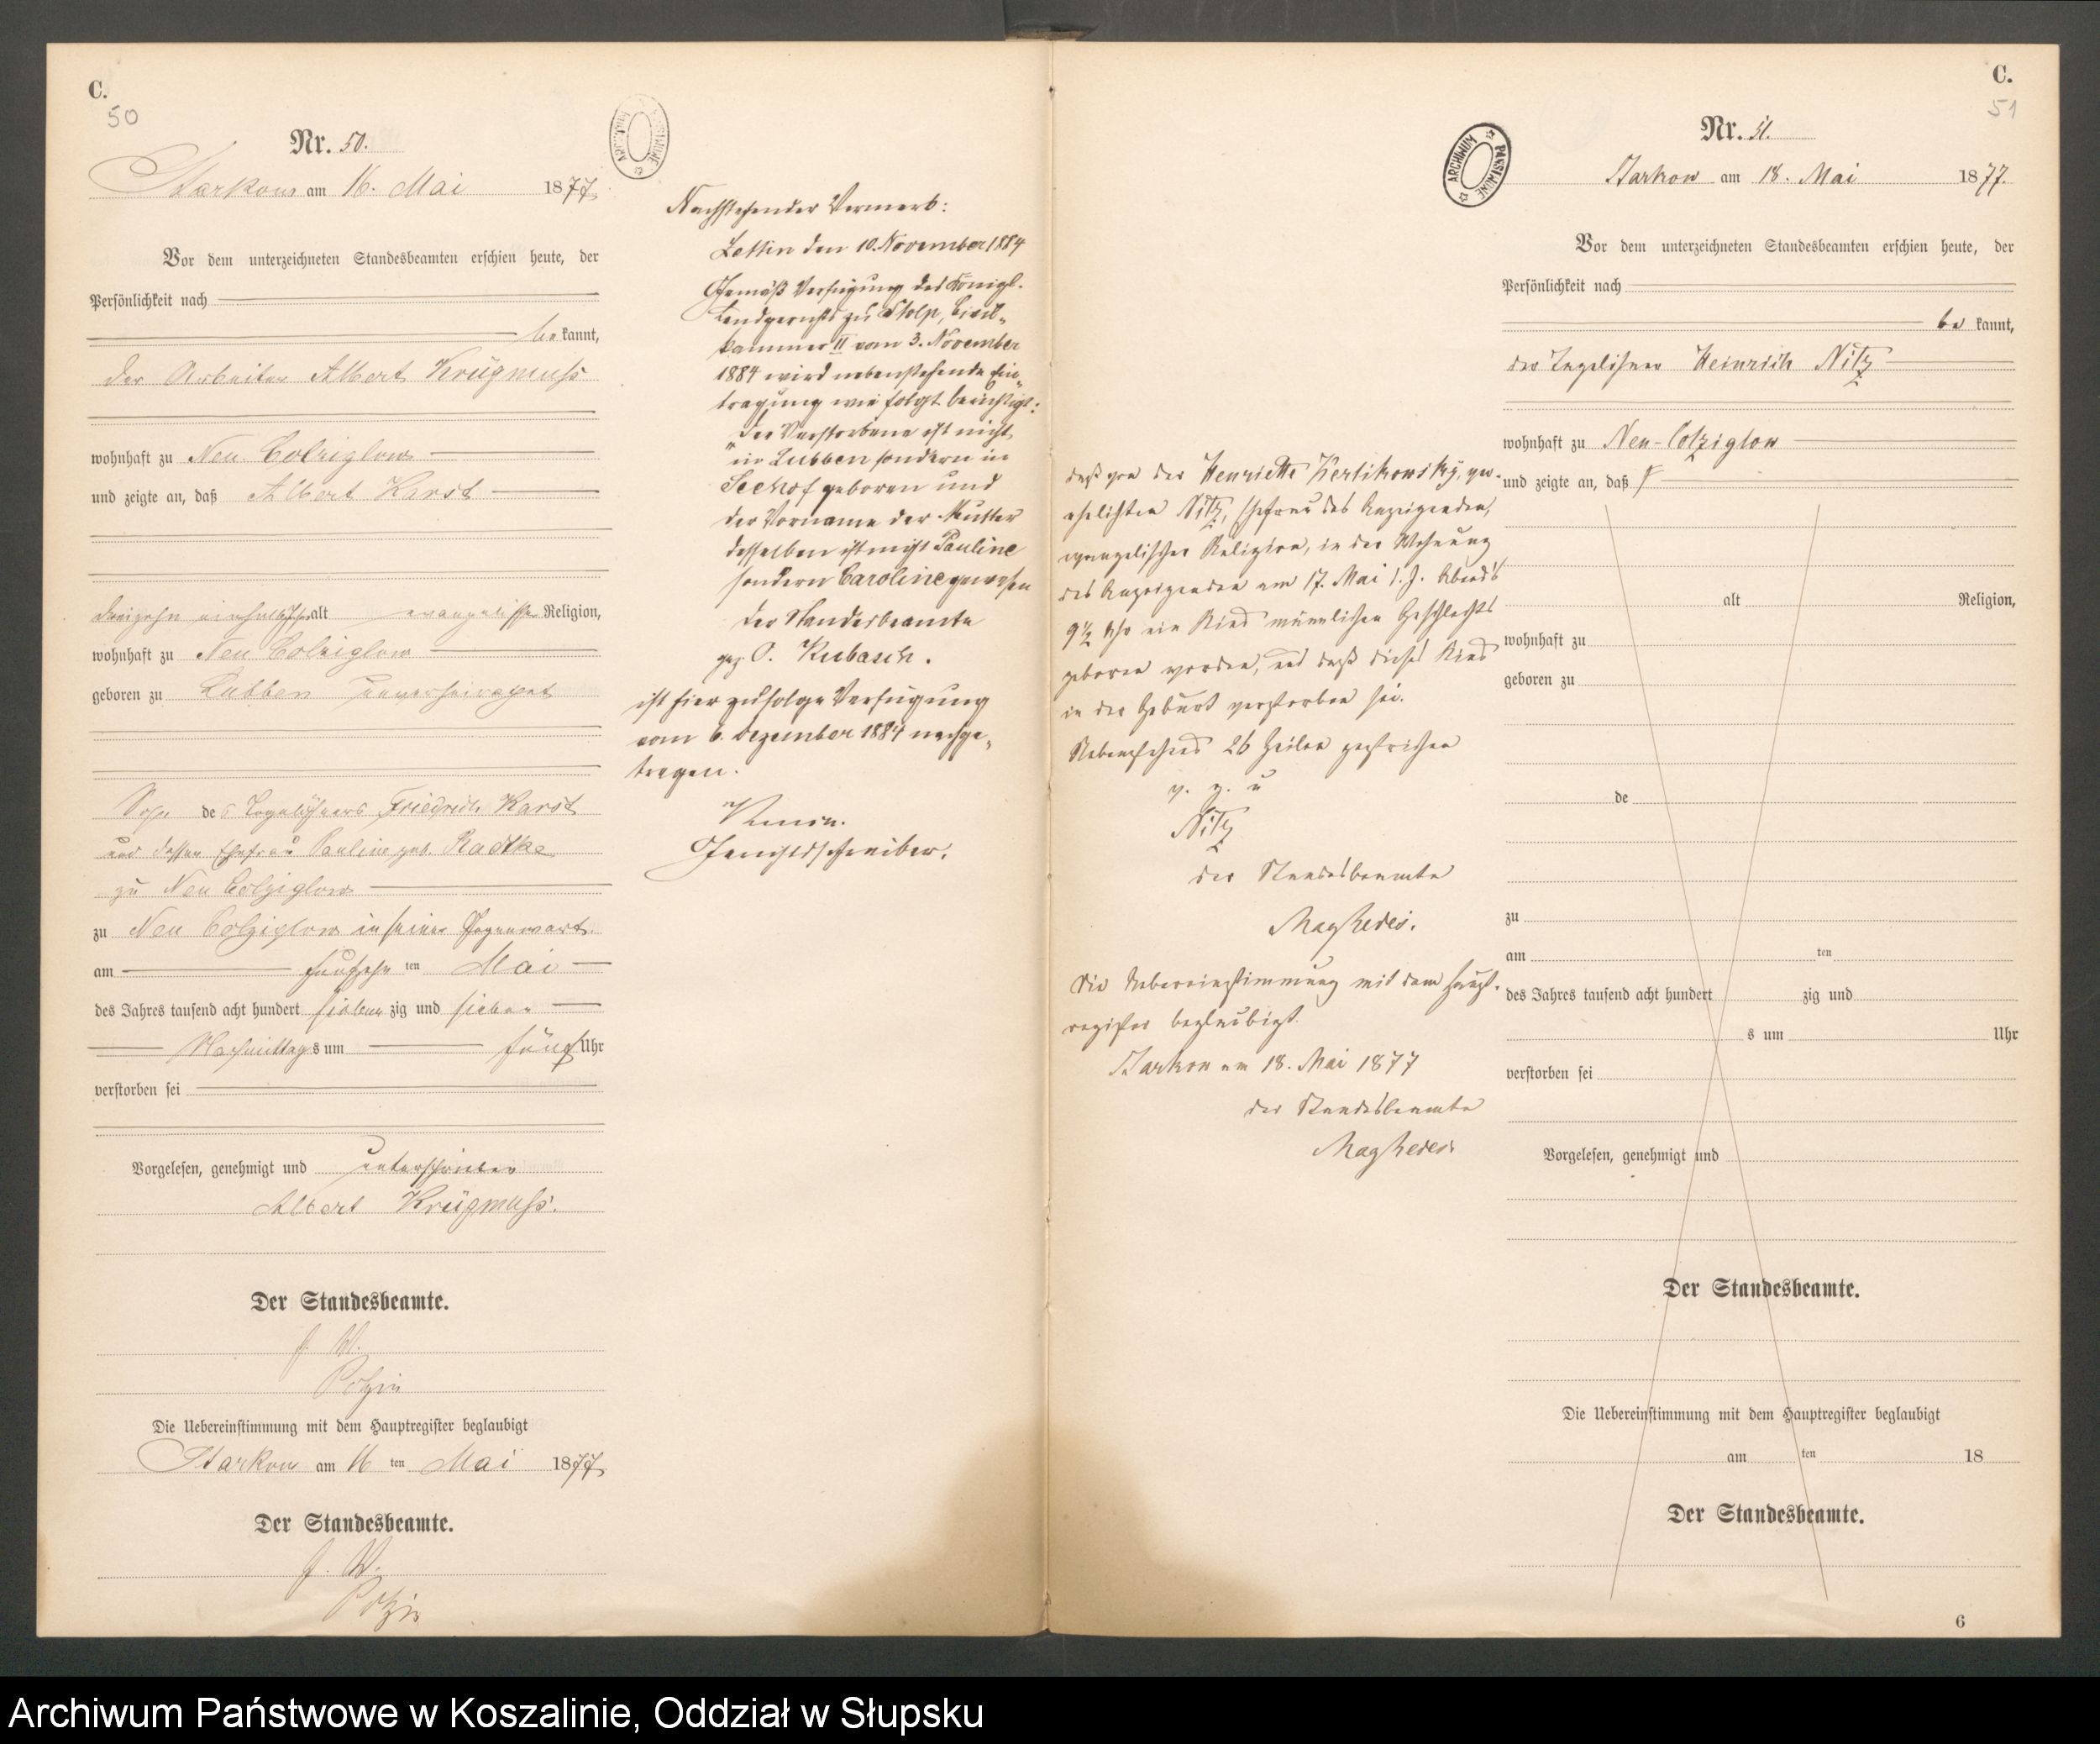 C.
50
Nr. 50.
Starkow am 16. Mai 1877
Vor dem unterzeichneten Standesbeamten erschien heute, der
Persönlichkeit nach
be kannt,
der Arbeiter Albert Krügmuss
wohnhaft zu Neu Colziglow
und zeigte an, daß Albert Karst
dreizehn einhalb Jahr alt evangelischer Religion,
wohnhaft zu Neu Colziglow
geboren zu Lubben unverheirathet
Sohn des Tagelöhners Friedrich Karst
und dessen Ehefrau Pauline geb. Radtke
zu Neu Colziglow
zu Neu Colziglow in seiner Gegenwart
am fünfzehn ten Mai
des Jahres tausend acht hundert sieben zig und sieben
Nachmittags um fünf Uhr
verstorben sei
Vorgelesen, genehmigt und unterschrieben
Albert Krügmuss.
Der Standesbeamte.
J. V.
Polzin
Die Uebereinstimmung mit dem Hauptregister beglaubigt
Starkow am 16 ten Mai 1877
Der Standesbeamte.
J. V.
Polzin
ARCHIWUM PAŃSTWOWE
Nachstehender Vermerk:
Lettin den 10. November 1884
Gemäß Verfügung des Königl.
Landgerichts zu Stolp, Civil-
kammer II vom 3. November
1884 wird nebenstehende Ein-
tragung wie folgt berichtigt:
"der Verstorbene ist nicht
in Lubben sondern in
Seehof geboren und
der Vorname der Mutter
desselben ist nicht Pauline
sondern Caroline gewesen
der Standesbeamte
gez. O. Kubasch.
ist hier zufolge Verfügung
vom 6. Dezember 1884 nachge-
tragen.
Gerichtsschreiber.
C.
51
Nr. 51.
ARCHIWUM PAŃSTWOWE
Starkow am 18. Mai 1877.
Vor dem unterzeichneten Standesbeamten erschien heute, der
Persönlichkeit nach
be kannt,
der Tagelöhner Heinrich Nitz
wohnhaft zu Neu-Colziglow
und zeigte an, daß
daß von der Henriette Kerlikowsky, ver-
ehelichten Nitz, Ehefrau des Anzeigenden,
evangelischer Religion, in der Wohnung
des Anzeigenden am 17. Mai d. J. Abends
9 1/2 Uhr ein Kind männlichen Geschlechts
geboren worden, und daß dieses Kind
in der Geburt verstorben sei.
Nebenstehend 26 Zeilen gestrichen
v. g. u
Nitz
der Standesbeamte
Die Uebereinstimmung mit dem Haupt-
register beglaubigt.
Starkow am 18. Mai 1877
der Standesbeamte
alt Religion,
wohnhaft zu
geboren zu
de
zu
am ten
des Jahres tausend acht hundert zig und
s um Uhr
verstorben sei
Vorgelesen, genehmigt und
Der Standesbeamte.
Die Uebereinstimmung mit dem Hauptregister beglaubigt
am ten 18
Der Standesbeamte.
6
Archiwum Państwowe w Koszalinie, Oddział w Słupsku